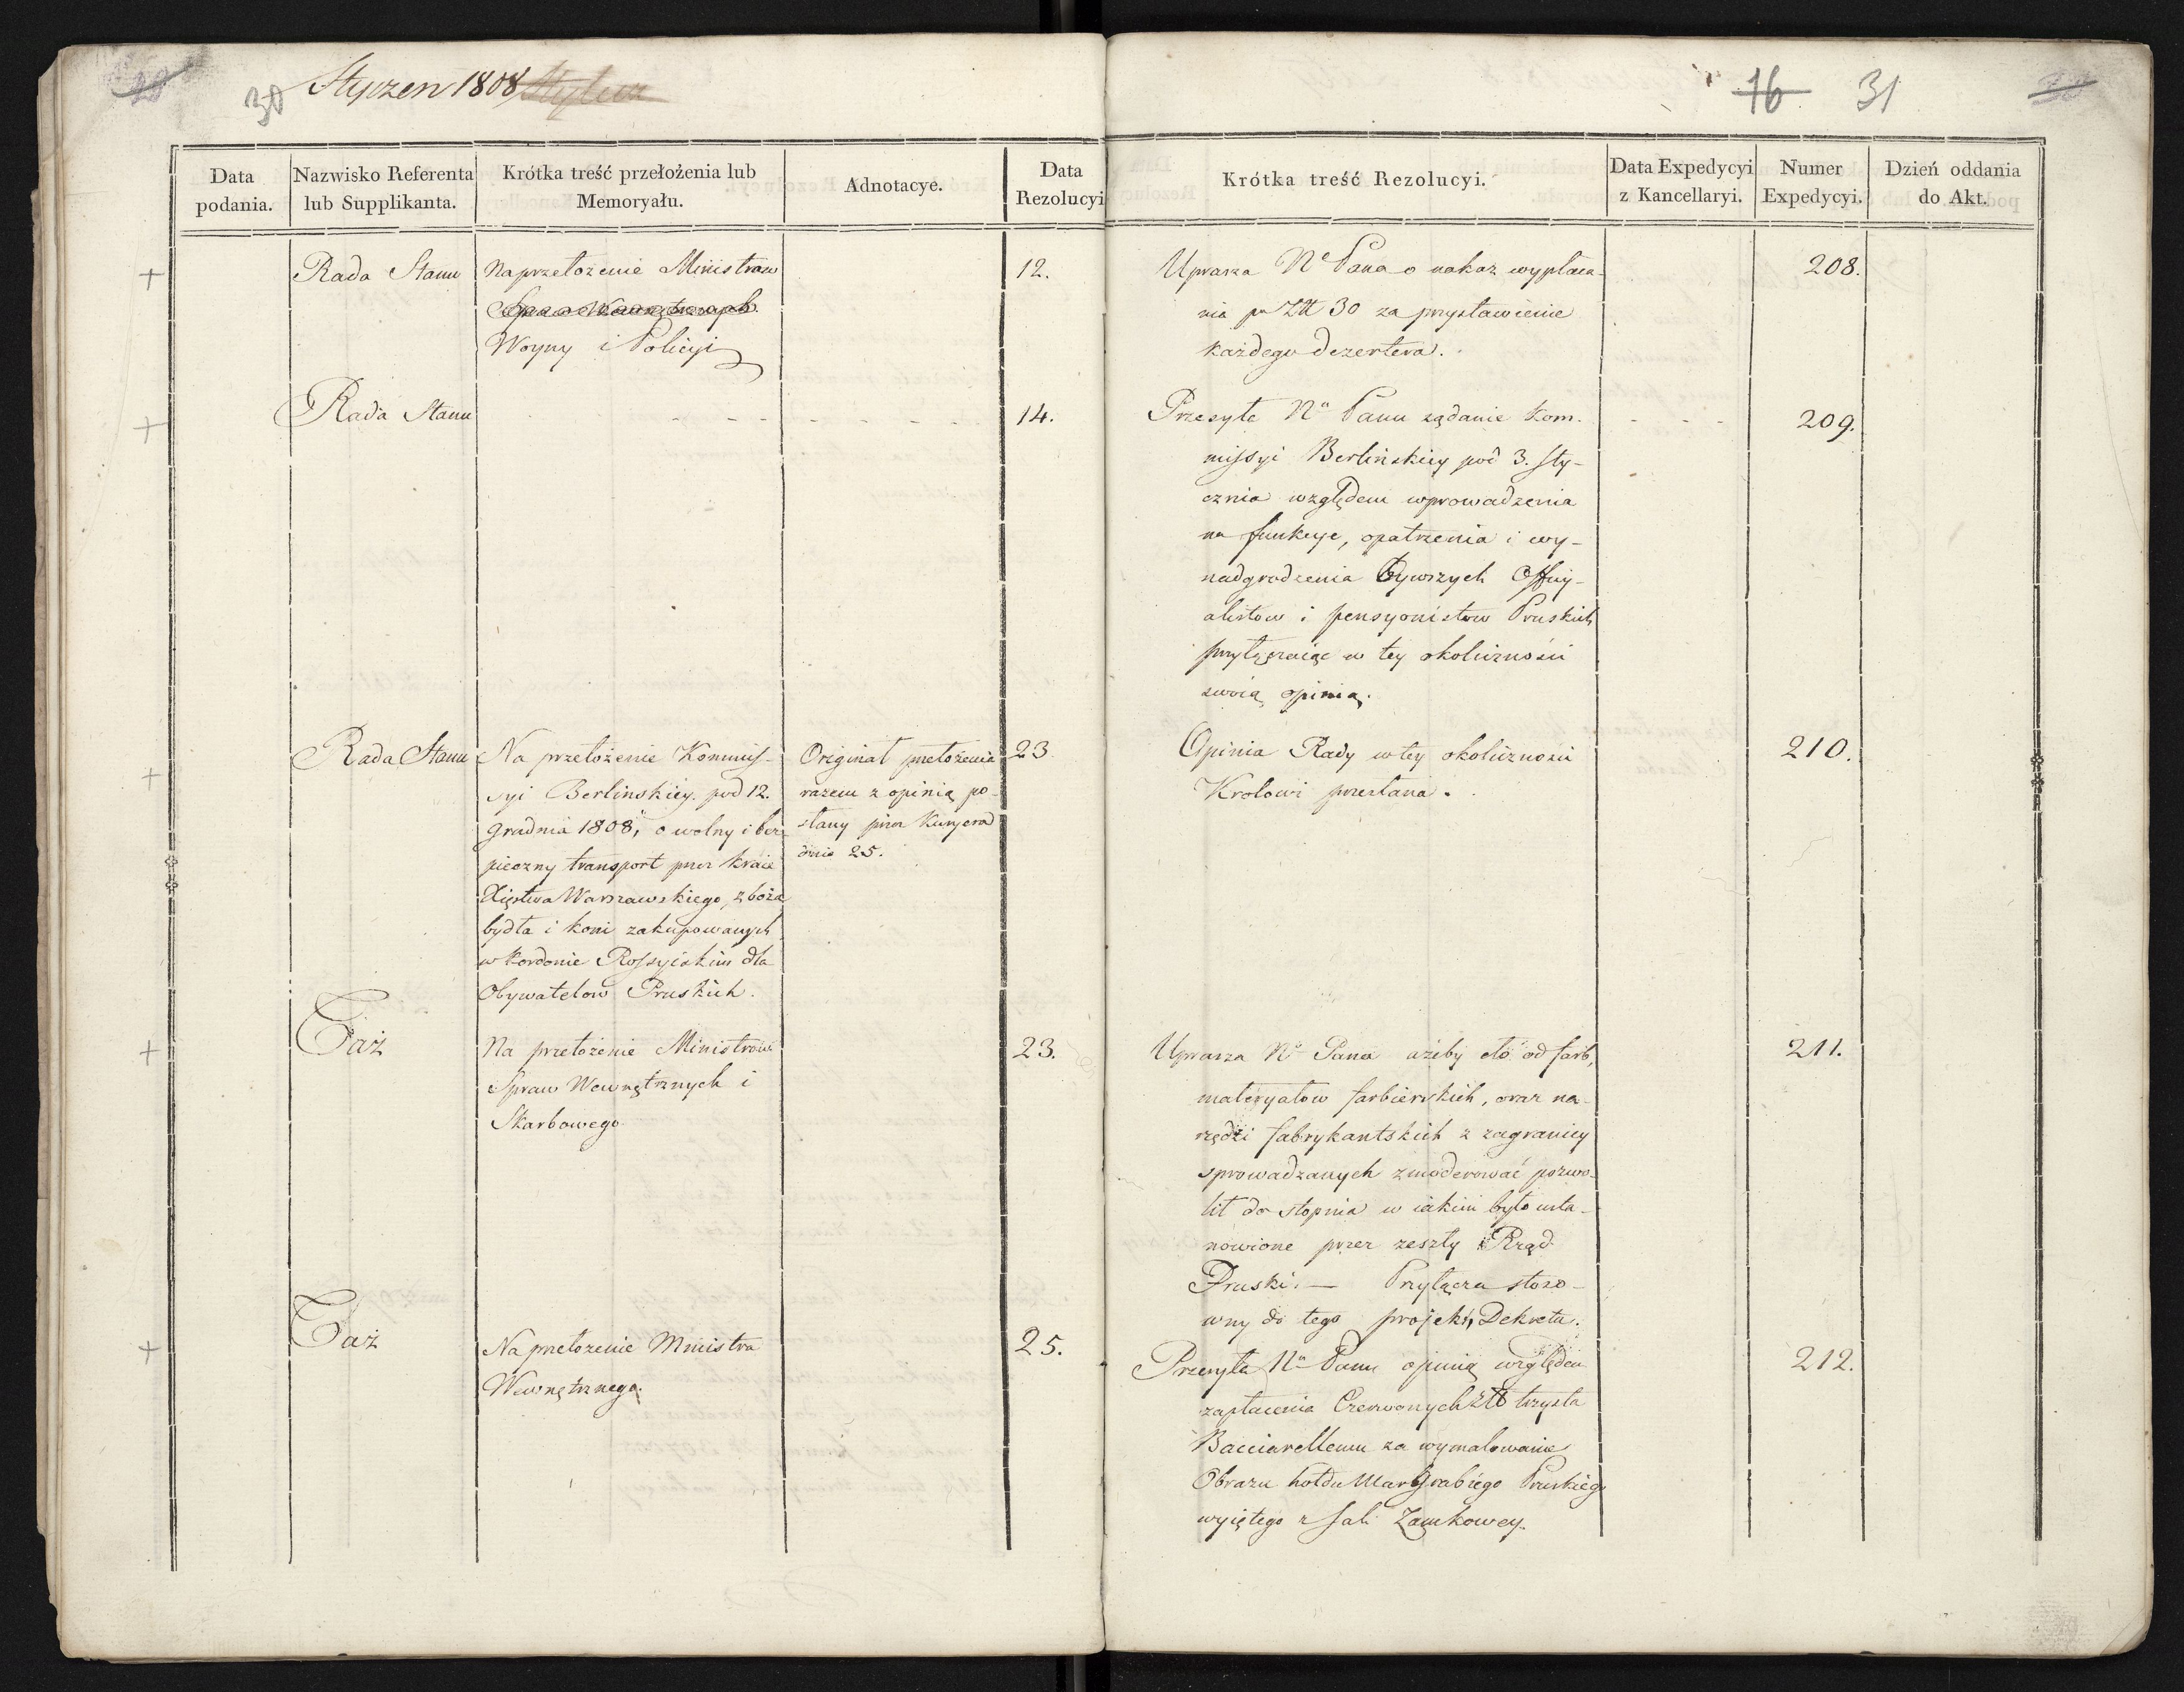 30 Styczen 1808
16 31
Data podania.
Nazwisko Referenta lub Supplikanta.
Krótka treść przełożenia lub Memoryału.
Adnotacye.
Data Rezolucyi
Krótka treść Rezolucyi.
Data Expedycyi z Kancellaryi.
Numer Expedycyi.
Dzień oddania do Akt.
+
Rada Stanu
Na przełożenie Ministrow
Spraw Wewnętrznych
Woyny i Policyi
12.
Uprasza Ne Pana o nakaz wypłaca-
nia po Złł 30 za przystawienie
każdego dezertera.
208.
+
Rada Stanu
14.
Przesyła Nu Panu żądanie Kom-
missyi Berlińskiey pod 3. Sty-
cznia względem wprowadzenia
na funkcye, opatrzenia i wy-
nadgrodzenia bywszych Offcy-
alistow i pensyonistow Pruskich
przyłączaiąc w tey okoliczności
swoią opinią.
209.
+
Rada Stanu
Na przełożenie Kommis-
syi Berlinskiey. pod 12.
Grudnia 1808, o wolny i bez-
pieczny transport przez kraie
Xięstwa Warszawskiego, zboża
bydła i koni zakupowanych
w kordonie Rossyiskim dla
Obywatelow Pruskich.
Originał przełożenia
razem z opinią po-
słany przez Kuryera
dnia 25.
23.
Opinia Rady w tey okoliczności
Krolowi przesłana.
210.
+
Taż
Na przełożenie Ministrow
Spraw Wewnętrznych i
Skarbowego.
23.
Uprasza No Pana ażeby cło od farb,
materyałow farbierskich, oraz na-
rzędzi fabrykantskich z zagranicy
sprowadzanych zmoderować pozwo-
lił do stopnia w iakim było usta-
nowione przez zeszły Rząd
Pruski. — Przyłącza stoso-
wny do tego projekt Dekretu.
211.
+
Taż
Na przełożenie Ministra
Wewnętrznego.
25.
Przesyła Nu Panu opinią względem
zapłacenia Czerwonych Złł trzysta
Bacciarellemu za wymalowanie
Obrazu hołdu Margrabiego Pruskiego
wyiętego z Sali Zamkowey.
212.